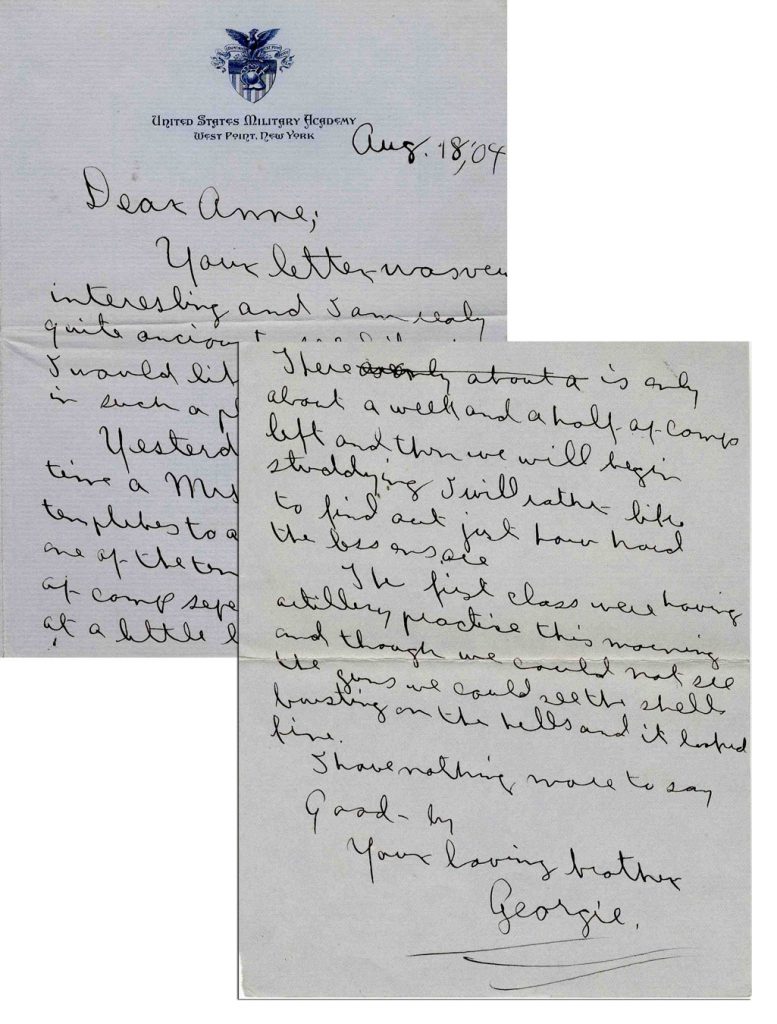 UNITED STATES MILITARY ACADEMY
WEST POINT, NEW YORK
Aug. 18, '04
Dear Anne;
Your letter was ver
interesting and I am realy
quite ancious to see
I would lik
in such a p
Yesterd
time a Mrs
to a
one of the ten
of camp sepe
at a little l
There only about a is only
about a week and a half of camp
left and then we will begin
studdying I will rather like
to find out just how hard
the lessons are
The first class were having
artillery practise this morning
and though we could not see
the guns we could see the shells
bursting on the hells and it looked
fine.
I have nothing more to say
Good-by
Your loving brother
Georgie.